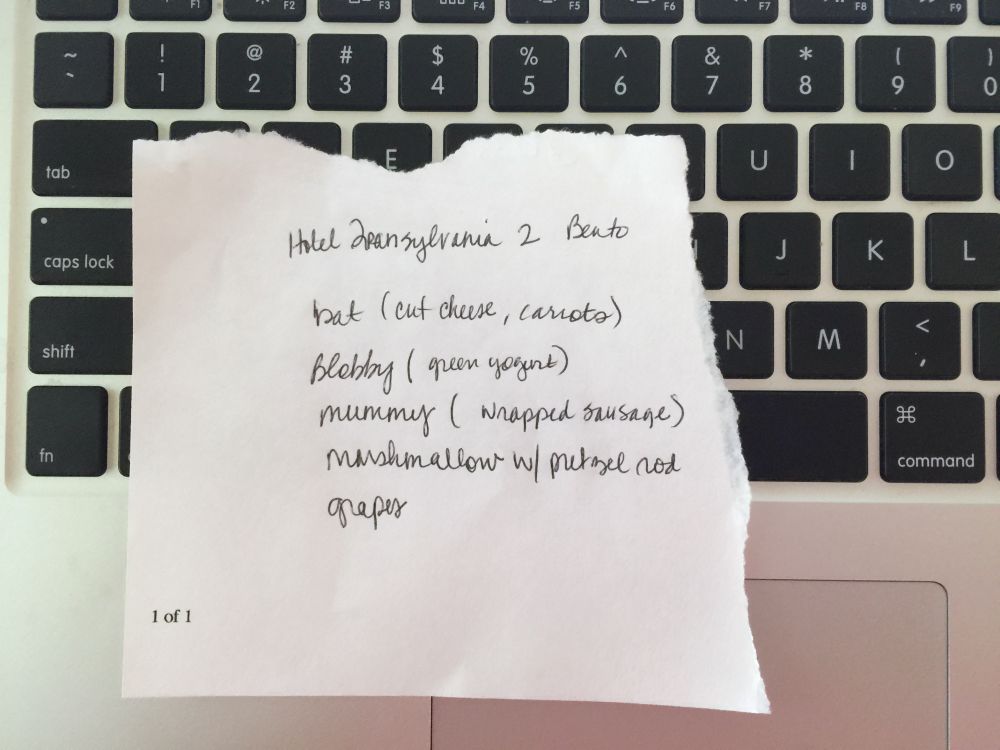 F1 F2 F3 F4 F5 F6 F7 F8 F9
~ ! @ # $ % ^ & * ( )
` 1 2 3 4 5 6 7 8 9 0
tab E U I O
caps lock J K L
shift N M < ,
fn ⌘ command
Hotel Transylvania 2 Bento
bat (cut cheese, carrots)
Blobby (green yogurt)
mummy (wrapped sausage)
marshmallow w/ pretzel rod
grapes
1 of 1